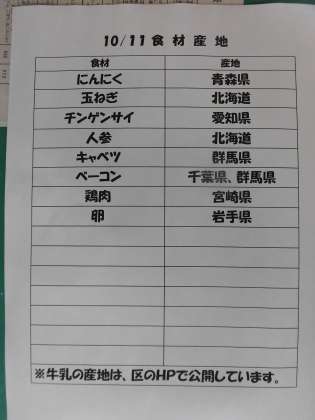 10/11食材産地
食材 産地
にんにく 青森県
玉ねぎ 北海道
チンゲンサイ 愛知県
人参 北海道
キャベツ 群馬県
ベーコン 千葉県、群馬県
鶏肉 宮崎県
卵 岩手県
※牛乳の産地は、区のHPで公開しています。